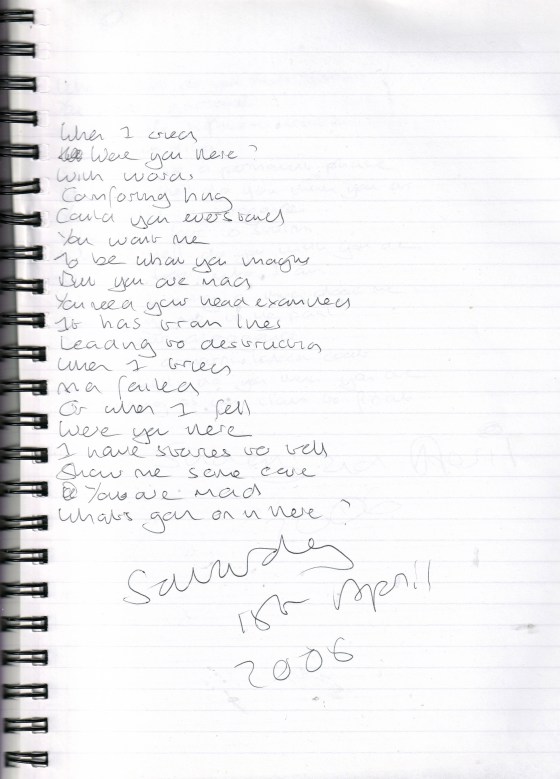 When I cried
Were you here?
With words
Comforing hug
Could you ever
You want me
To be what you imagine
But you are mad
You need your head examined
It has tram lines
Leading to destruction
When I tried
failed
Or when I fell
Were you here
I have stories to tell
Show me some care
You are mad
What's goin on in here?
Saturday
18th April
2006